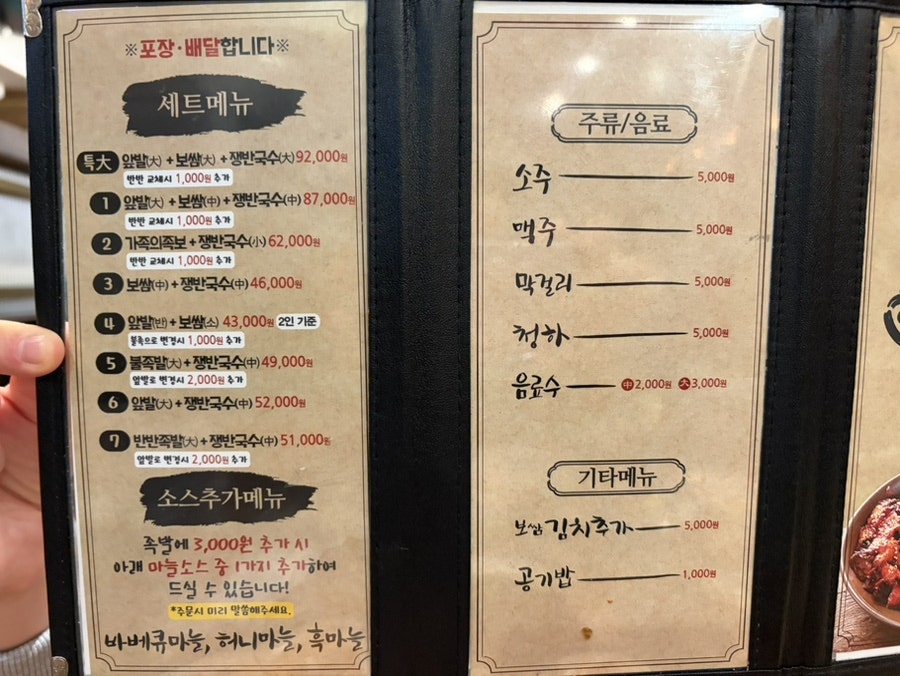 ※포장·배달합니다※
세트메뉴
특大 앞발(大) + 보쌈(大) + 쟁반국수(大) 92,000원
반반 교체시 1,000원 추가
1 앞발(大) + 보쌈(中) + 쟁반국수(中) 87,000원
반반 교체시 1,000원 추가
2 가족의족보 + 쟁반국수(小) 62,000원
반반 교체시 1,000원 추가
3 보쌈(中) + 쟁반국수(中) 46,000원
4 앞발(반) + 보쌈(소) 43,000원 2인 기준
불족으로 변경시 1,000원 추가
5 불족발(大) + 쟁반국수(中) 49,000원
앞발로 변경시 2,000원 추가
6 앞발(大) + 쟁반국수(中) 52,000원
7 반반족발(大) + 쟁반국수(中) 51,000원
앞발로 변경시 2,000원 추가
소스추가메뉴
족발에 3,000원 추가 시
아래 마늘소스 중 1가지 추가하여
드실 수 있습니다!
*주문시 미리 말씀해주세요.
바베큐마늘, 허니마늘, 흑마늘
주류/음료
소주 5,000원
맥주 5,000원
막걸리 5,000원
청하 5,000원
음료수 中 2,000원 大 3,000원
기타메뉴
보쌈 김치추가 5,000원
공기밥 1,000원